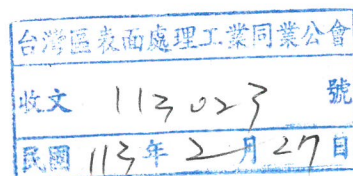 台灣區表面處理工業同業公會
收文 113023 號
民國 113 年 2 月 27 日